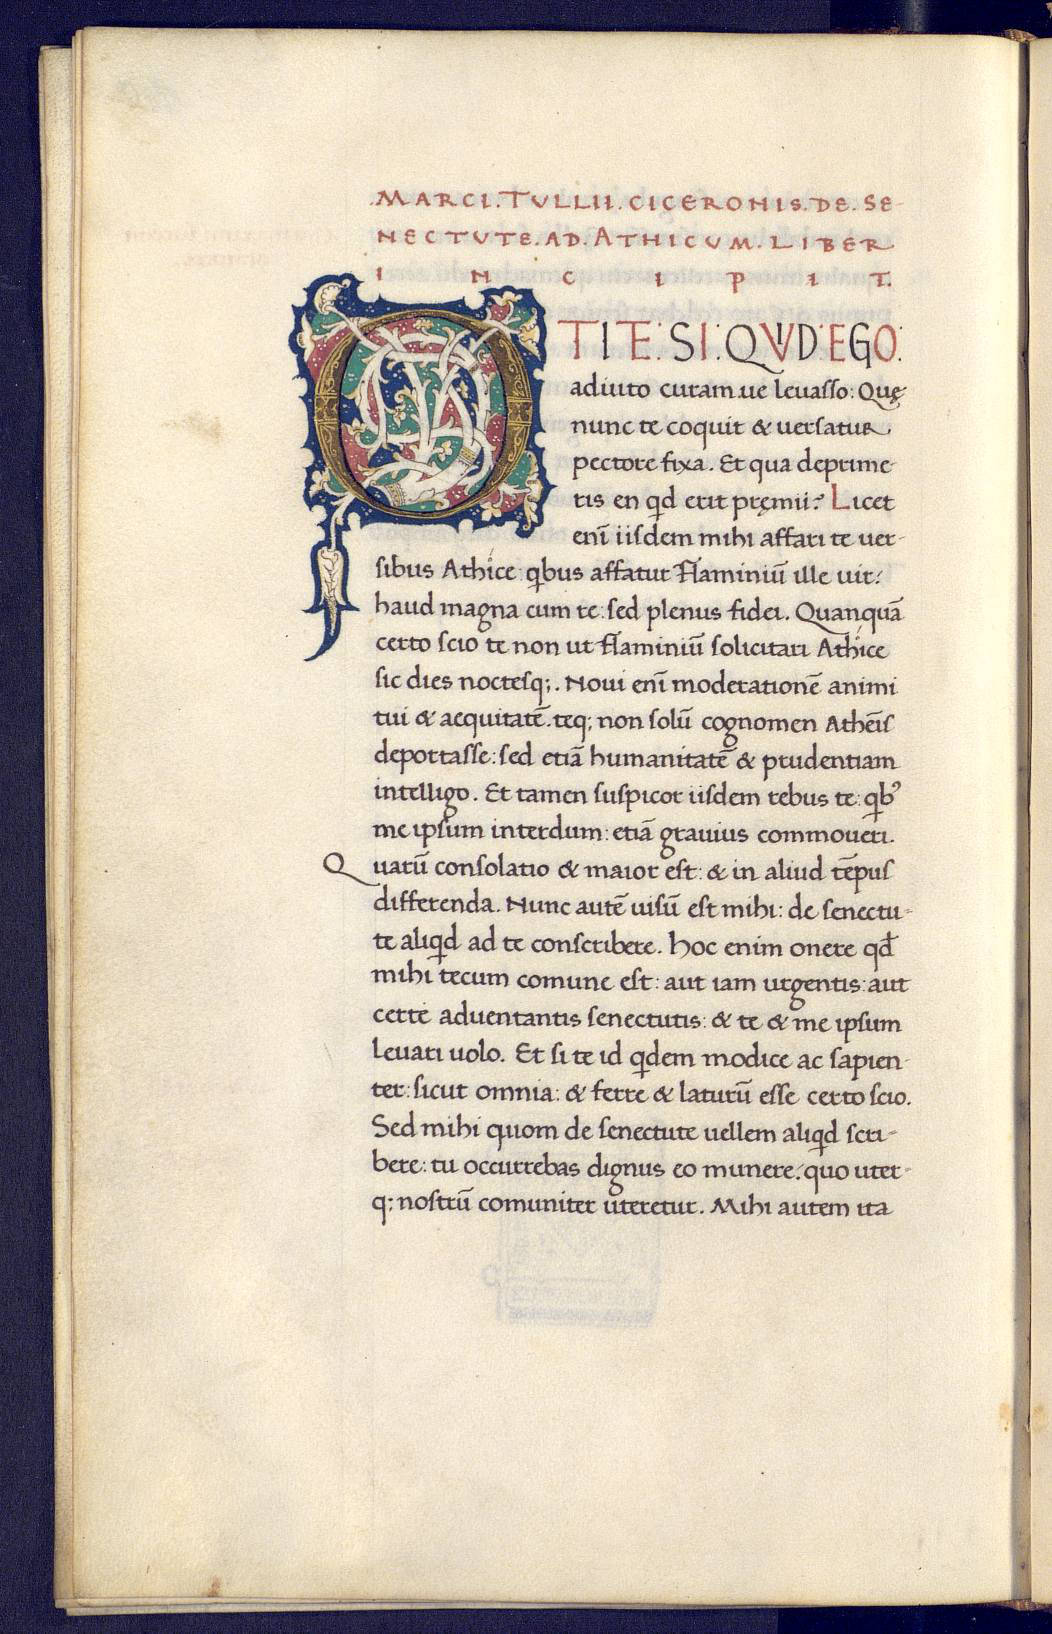 .MARCI.TULLII.CICERONIS.DE.SE-
NECTUTE.AD.ATHICUM.LIBER
INCIPIT.
O TITE.SI.QVID.EGO.
adiuto curam.ue leuasso: Quę
nunc te coquit & uersatur
pectore fixa. Et qua deprime-
ris en qd erit pręmii? Licet
enī iisdem mihi affari te uer-
sibus Athice: qbus affatur Flaminiū ille uir:
haud magna cum re: sed plenus fidei. Quanquā
certo scio te non ut Flaminiū solicitari Athice
sic dies noctesq;. Noui enī moderationē animi
tui & aequitatē. teq; non solū cognomen Athēis
deportasse: sed etiā humanitatē & prudentiam
intelligo. Et tamen suspicor iisdem rebus te: qbꝰ
me ipsum interdum: etiā grauius commoueri.
Quarū consolatio & maior est: & in aliud tēpus
differenda. Nunc autē uisū est mihi: de senectu-
te aliqd ad te conscribere. hoc enim onere qđ
mihi tecum comune est: aut iam urgentis: aut
certe aduentantis senectutis: & te & me ipsum
leuari uolo. Et si te id qdem modice ac sapien-
ter: sicut omnia: & ferre & laturū esse certo scio.
Sed mihi quom de senectute uellem aliqd scri-
bere: tu occurrebas dignus eo munere: quo uter-
q; nostrū comuniter uteretur. Mihi autem ita